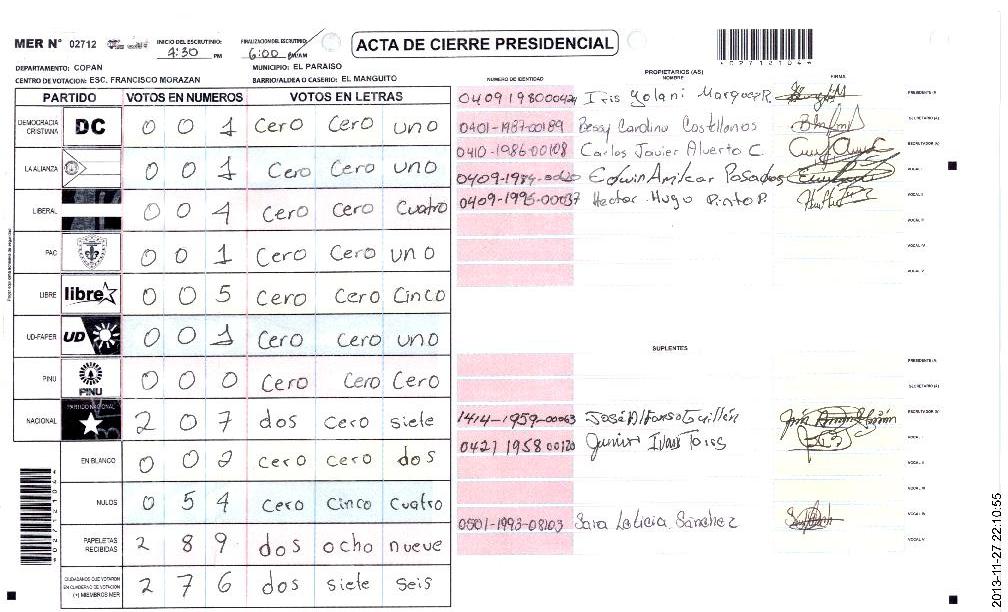 MER N° 02712
INICIO DEL ESCRUTINIO: 4:30 PM
FINALIZACION DEL ESCRUTINIO: 6:00 PM/AM
ACTA DE CIERRE PRESIDENCIAL
DEPARTAMENTO: COPAN
MUNICIPIO: EL PARAISO
CENTRO DE VOTACION: ESC. FRANCISCO MORAZAN
BARRIO/ALDEA O CASERIO: EL MANGUITO
PARTIDO VOTOS EN NUMEROS VOTOS EN LETRAS
DEMOCRACIA CRISTIANA DC 0 0 1 Cero Cero uno
LA ALIANZA 0 0 1 Cero Cero uno
LIBERAL 0 0 4 Cero Cero Cuatro
PAC 0 0 1 Cero Cero uno
LIBRE libre 0 0 5 Cero Cero Cinco
UD-FAPER UD 0 0 1 Cero Cero uno
PINU PINU 0 0 0 Cero Cero Cero
NACIONAL PARTIDO NACIONAL 2 0 7 dos cero siete
EN BLANCO 0 0 2 cero cero dos
NULOS 0 5 4 cero Cinco Cuatro
PAPELETAS RECIBIDAS 2 8 9 dos ocho nueve
CIUDADANOS QUE VOTARON EN CUADERNO DE VOTACION (+) MIEMBROS MER 2 7 6 dos siete seis
PROPIETARIOS (AS)
NUMERO DE IDENTIDAD NOMBRE FIRMA
Iris Yolani Marquez R. PRESIDENTE (A)
0401-1987-00189 Bessy Carolina Castellanos SECRETARIO (A)
0410-1986-00108 Carlos Javier Alverto C. ESCRUTADOR (A)
0409-1984-0020 Edwin Amilcar Posadas VOCAL I
0409-1995-00037 Hector Hugo Pinto P. VOCAL II
VOCAL III
VOCAL IV
VOCAL V
SUPLENTES
PRESIDENTE (A)
SECRETARIO (A)
1414-1959-00063 José Alfonso Guillén ESCRUTADOR (A)
0421 1958 00120 Junior Ivan VOCAL I
VOCAL II
VOCAL III
0501-1993-08103 Sara Leticia Sánchez VOCAL IV
VOCAL V
2013-11-27 22:10:55